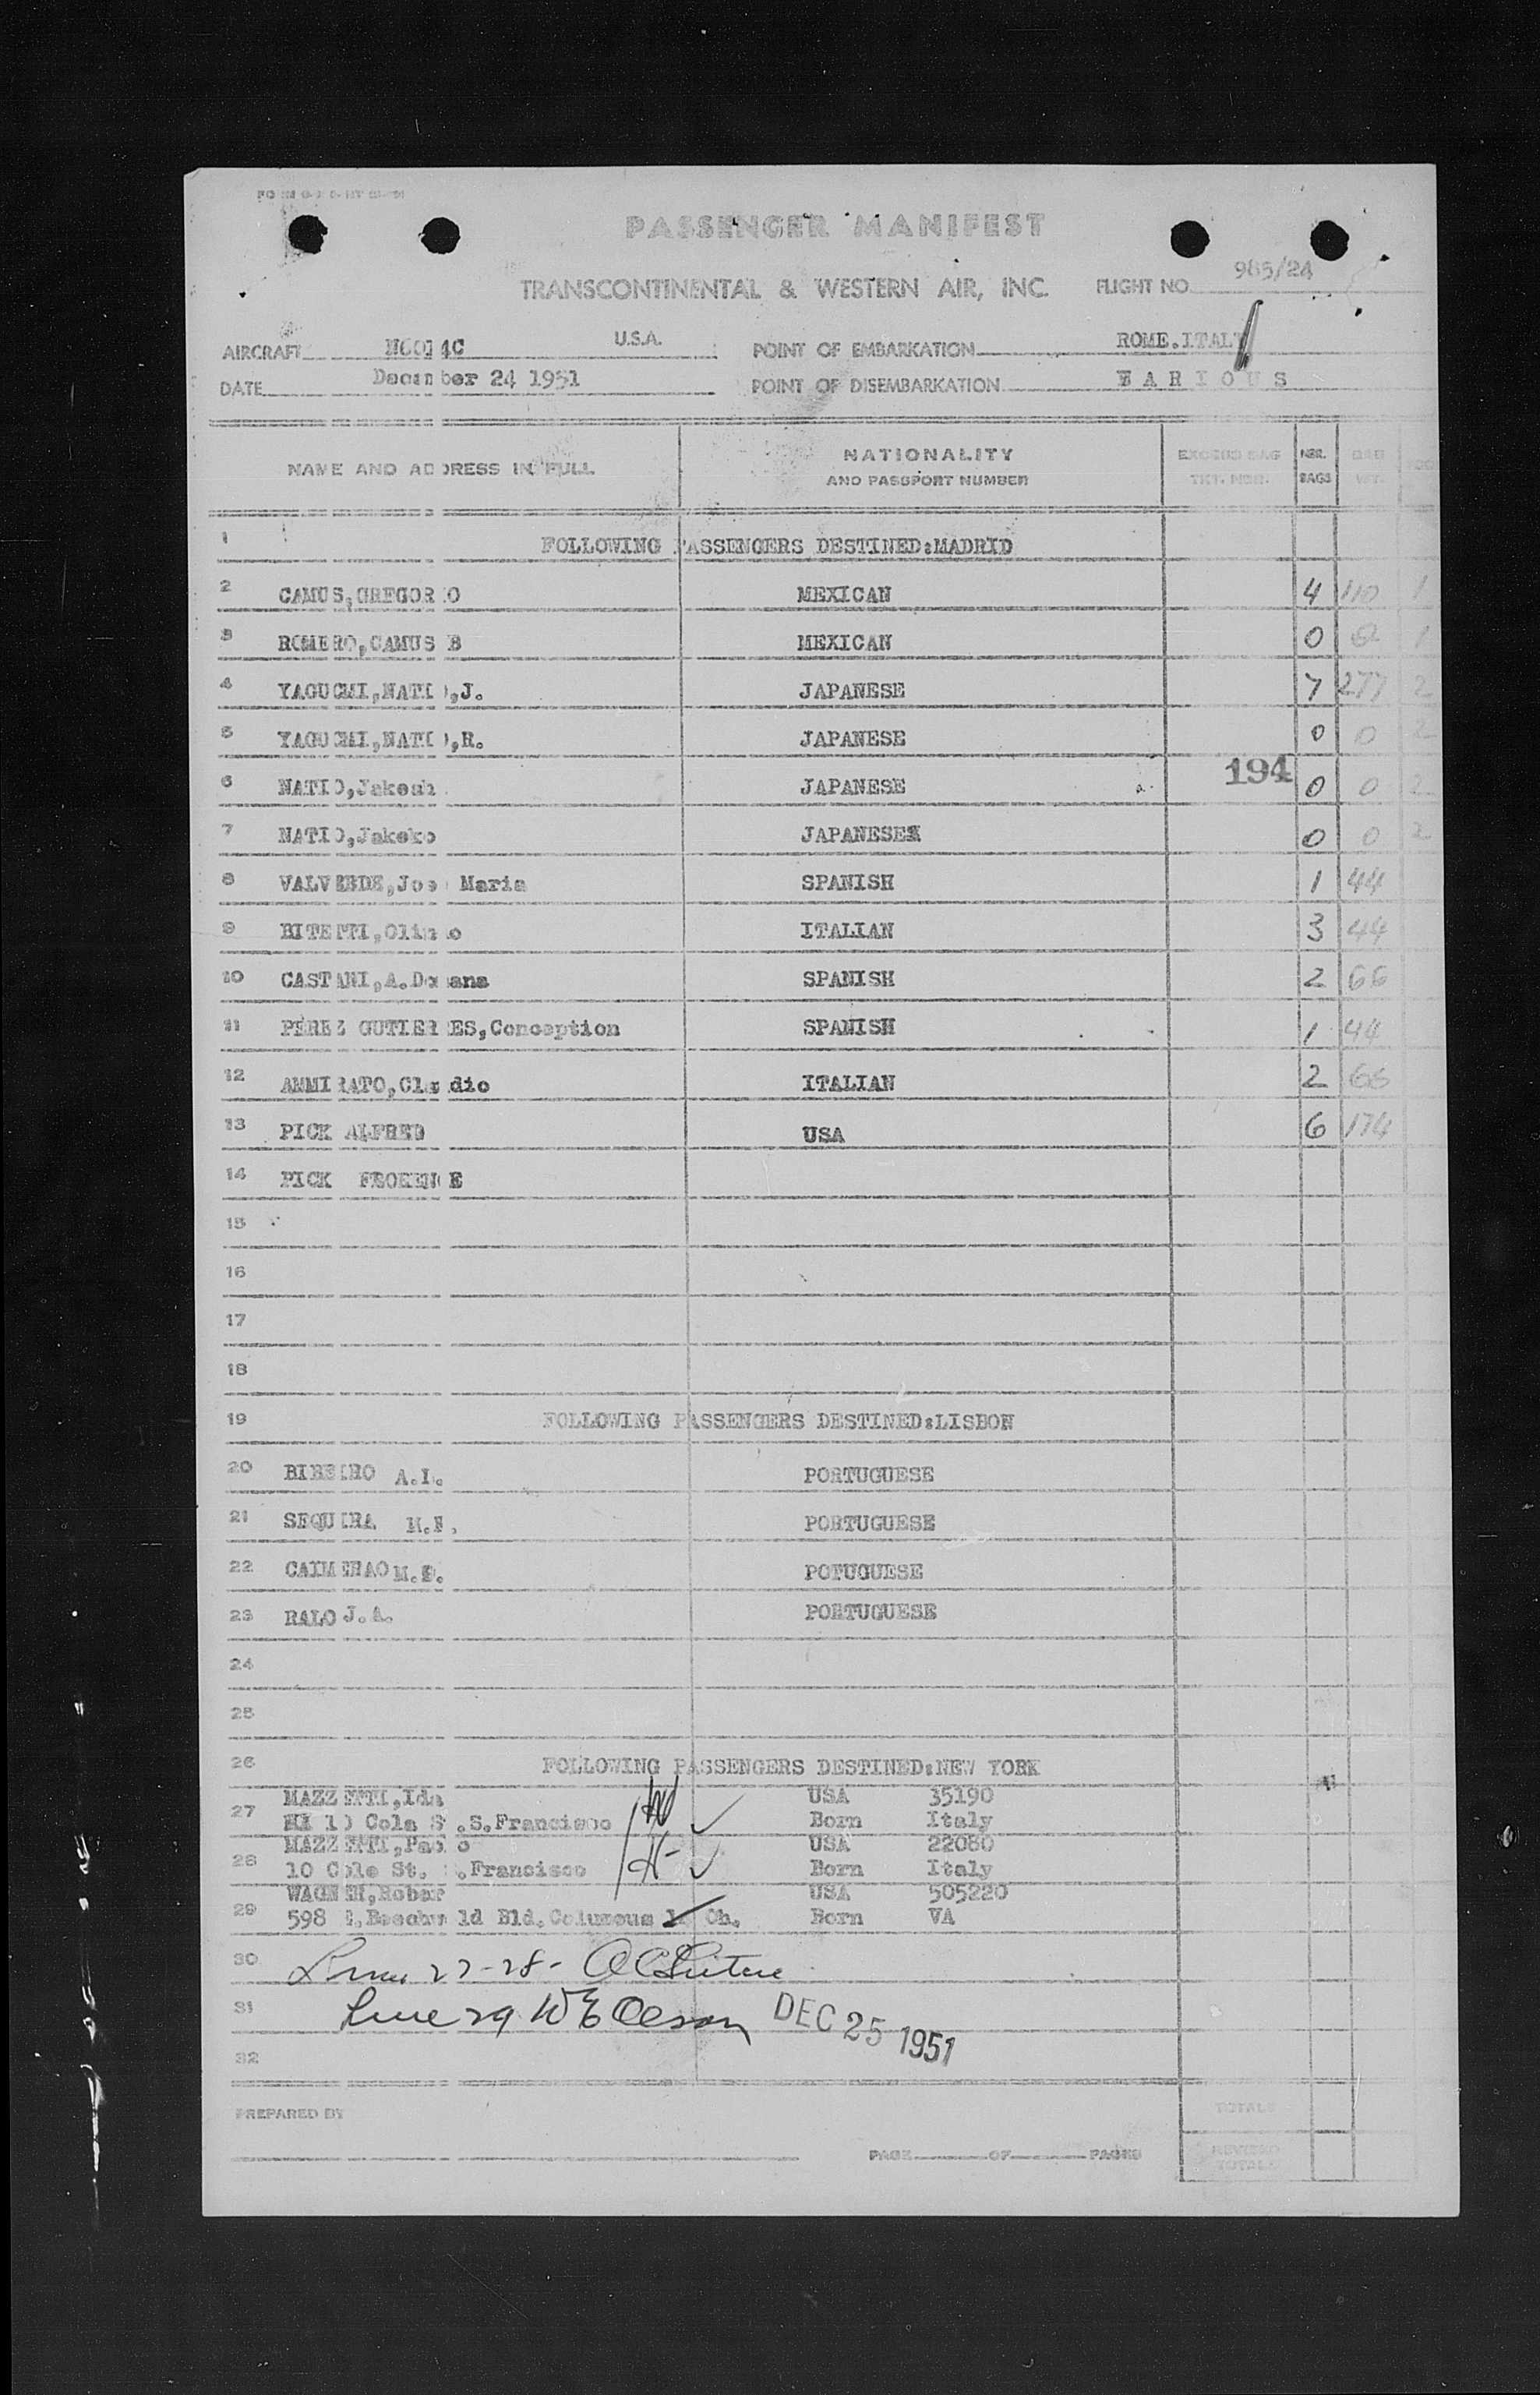 PASSENGER MANIFEST
TRANSCONTINENTAL & WESTERN AIR, INC. FLIGHT NO. 985/24
AIRCRAFT N6014C U.S.A. POINT OF EMBARKATION ROME.ITALY
DATE December 24 1951 POINT OF DISEMBARKATION BARIOUS
NAME AND ADDRESS IN FULL NATIONALITY AND PASSPORT NUMBER EXCESS BAG TKT. NBR. NBR. BAGS BAG WT.
1 FOLLOWING PASSENGERS DESTINED:MADRID
2 CAMUS,GREGORIO MEXICAN 4 110 1
3 ROMERO,CAMUS B MEXICAN 0 0 1
4 YAGUCHI,NATIO,J. JAPANESE 7 277 2
5 YAGUCHI,NATIO,R. JAPANESE 0 0 2
194
6 NATIO,Jakeah JAPANESE 0 0 2
7 NATIO,Jakeko JAPANESE 0 0 2
8 VALVERDE,Jose Maria SPANISH 1 44
9 BITETTI,Olinto ITALIAN 3 44
10 CASTANI,A. SPANISH 2 66
11 PEREZ GUTIERRES,Conception SPANISH 1 44
12 AMMIRATO,Claudio ITALIAN 2 66
13 PICK ALFRED USA 6 174
14 PICK FRORENCE
15
16
17
18
19 FOLLOWING PASSENGERS DESTINED:LISBON
20 RIBEIRO A.L. PORTUGUESE
21 SEQUIRA M.F. PORTUGUESE
22 CAIMERAO M. POTUGUESE
23 RALO J.A. PORTUGUESE
24
25
26 FOLLOWING PASSENGERS DESTINED:NEW YORK
MAZZETTI,Ida USA 35190
27 10 Cola S.S.Francisco Born Italy
MAZZETTI,Paolo USA 22080
28 10 Cole St. S.Francisco Born Italy
WAGNER,Rober USA 505220
29 598 Beechwold Bld.Columbus Oh. Born VA
30 Lines 27-28-
31 Line 29 W E Olson DEC 25 1951
32
PREPARED BY TOTALS
PAGE OF PAGES REVISED TOTALS